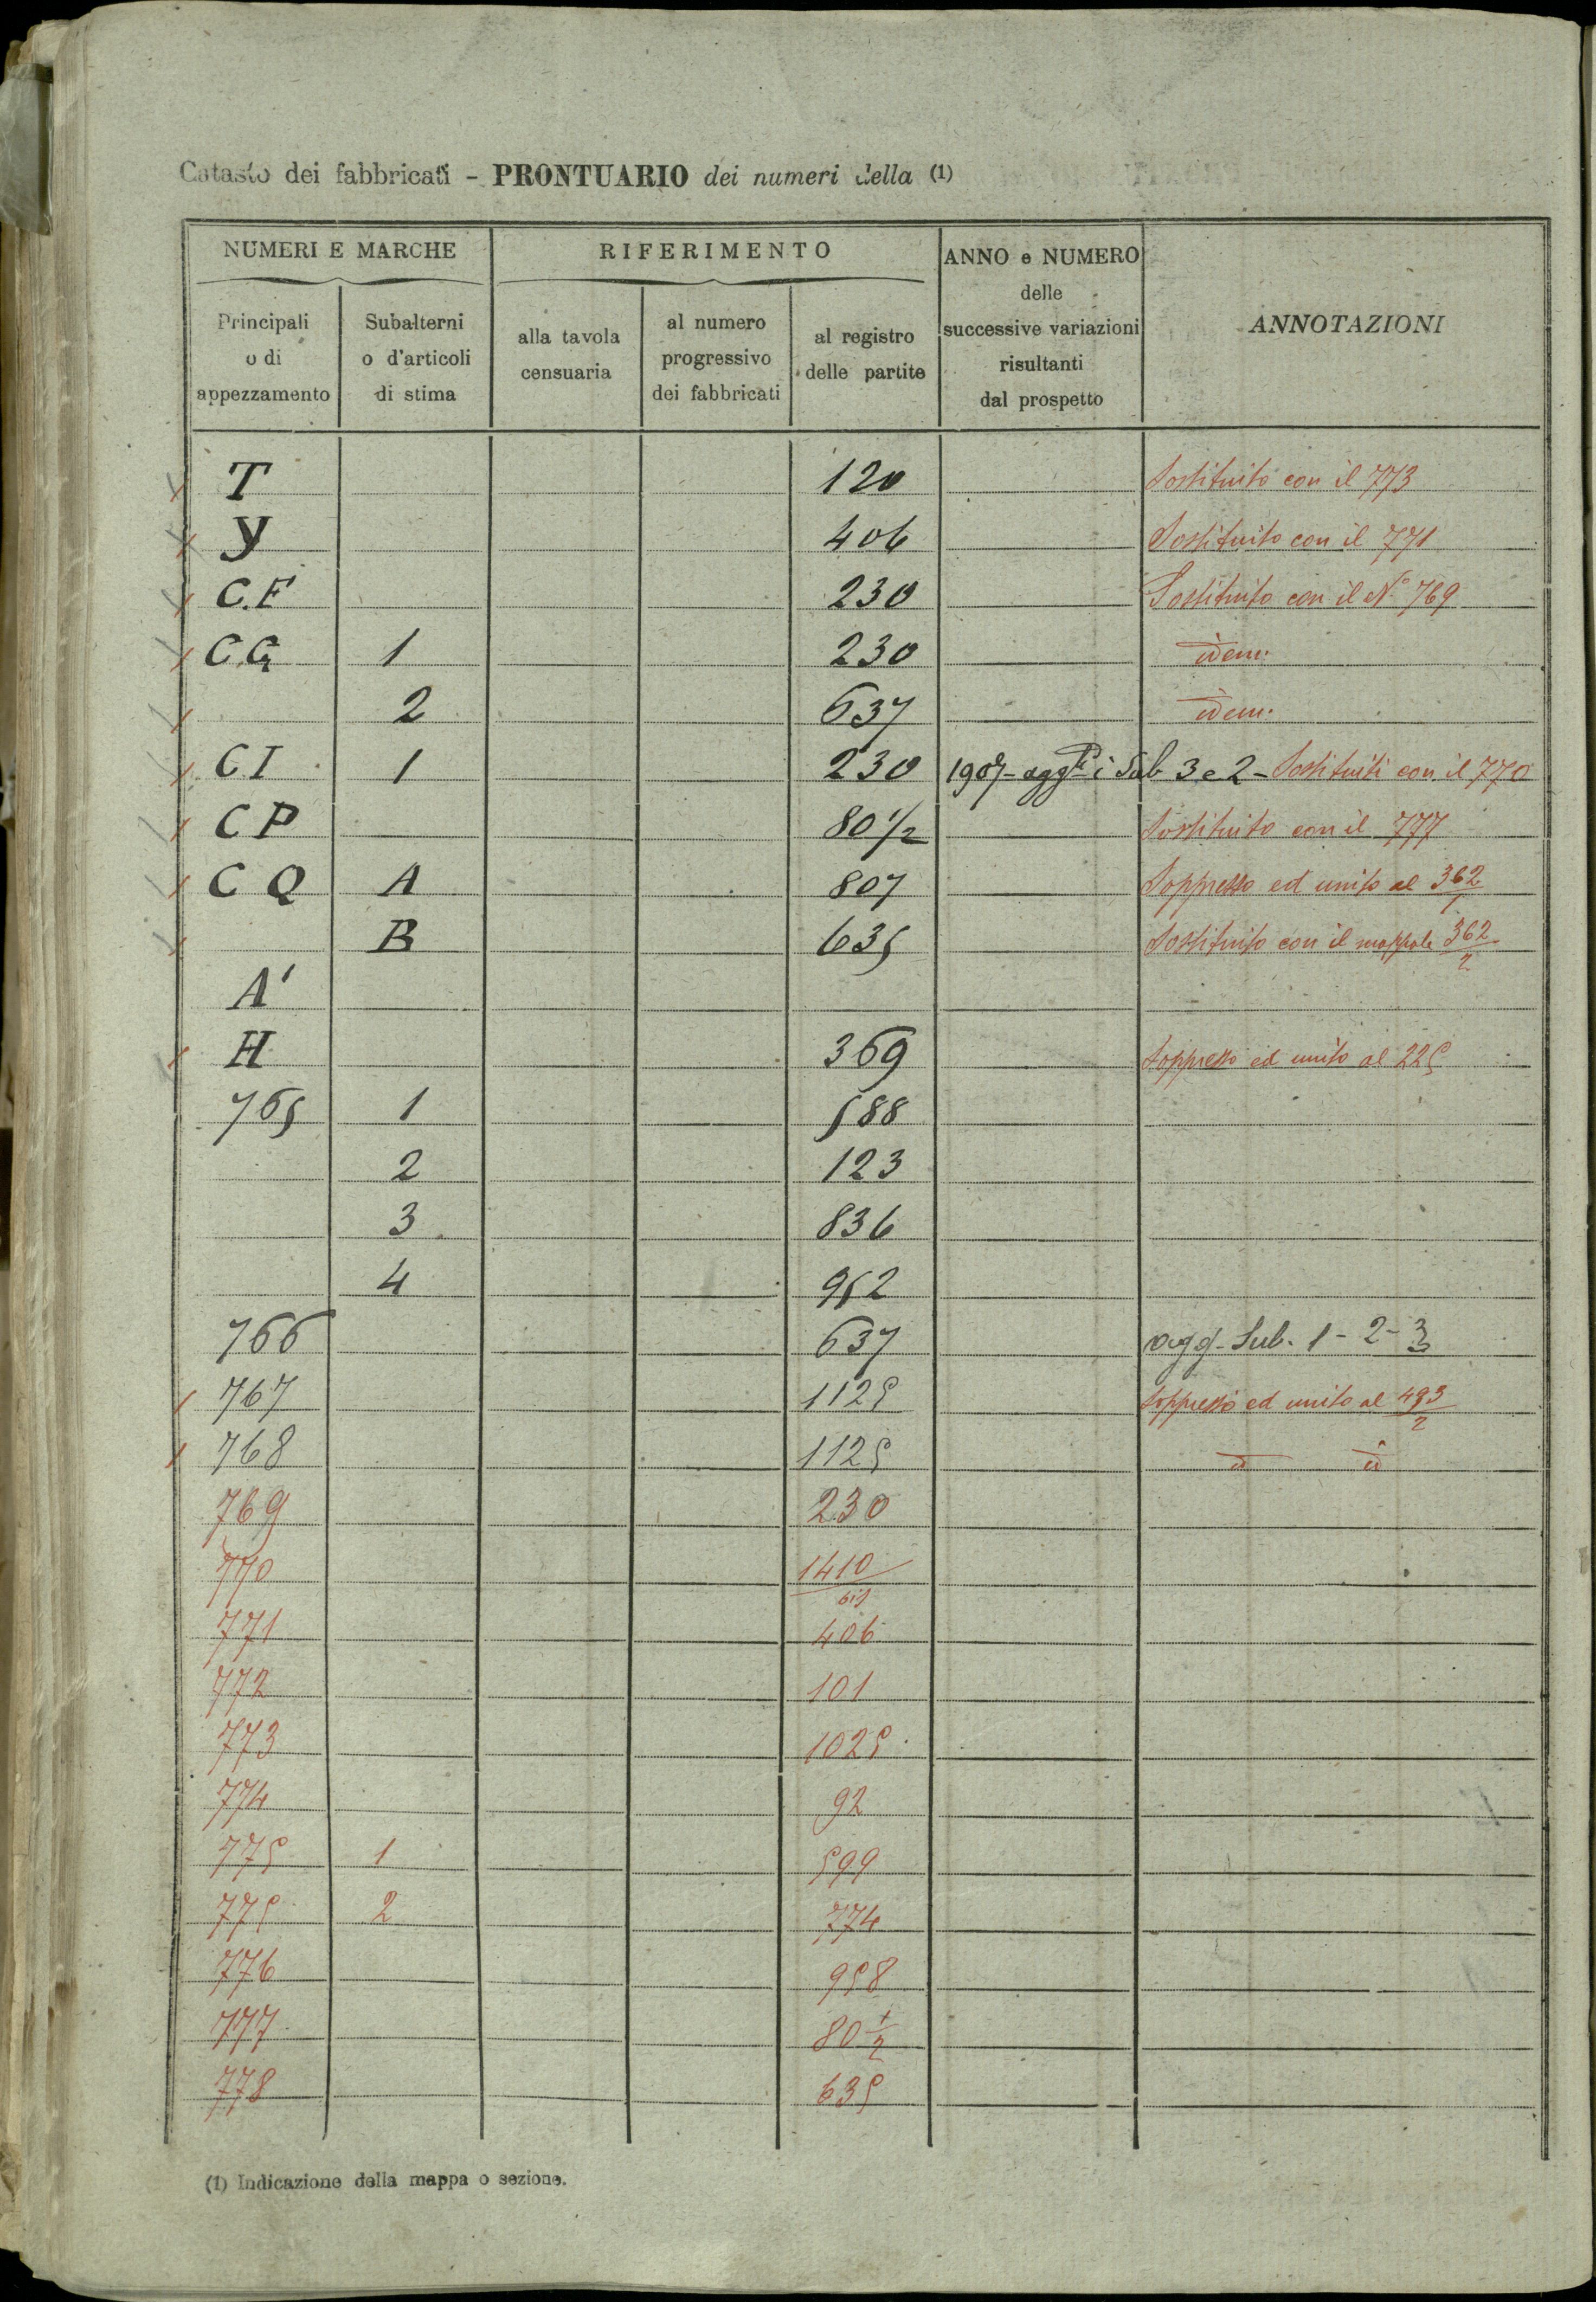 Catasto dei fabbricati - PRONTUARIO dei numeri della (1)
NUMERI E MARCHE
RIFERIMENTO
ANNO e NUMERO delle successive variazioni risultanti dal prospetto
ANNOTAZIONI
Principali o di appezzamento
Subalterni o d'articoli di stima
alla tavola censuaria
al numero progressivo dei fabbricati
al registro delle partite
T 120 Sostituito con il 773
Y 406 Sostituito con il 771
C.F 230 Sostituito con il N° 769
C.G 1 230 idem.
2 637 idem.
CI 1 230 1907 - aggti i Sub 3 e 2 - Sostituiti con il 770
CP 80 1/2 Sostituito con il 777
CQ A 807 Soppresso ed unito al 362/1
B 635 Sostituito con il mappale 362/2
A'
H 369 Soppresso ed unito al 225
765 1 588
2 123
3 836
4 952
766 637 agg. Sub. 1 - 2 - 3
767 1125 Soppresso ed unito al 493/2
768 1125 id id
769 230
770 1410/bis
771 406
772 101
773 1025
774 92
775 1 599
775 2 774
776 958
777 80 1/2
778 635
(1) Indicazione della mappa o sezione.